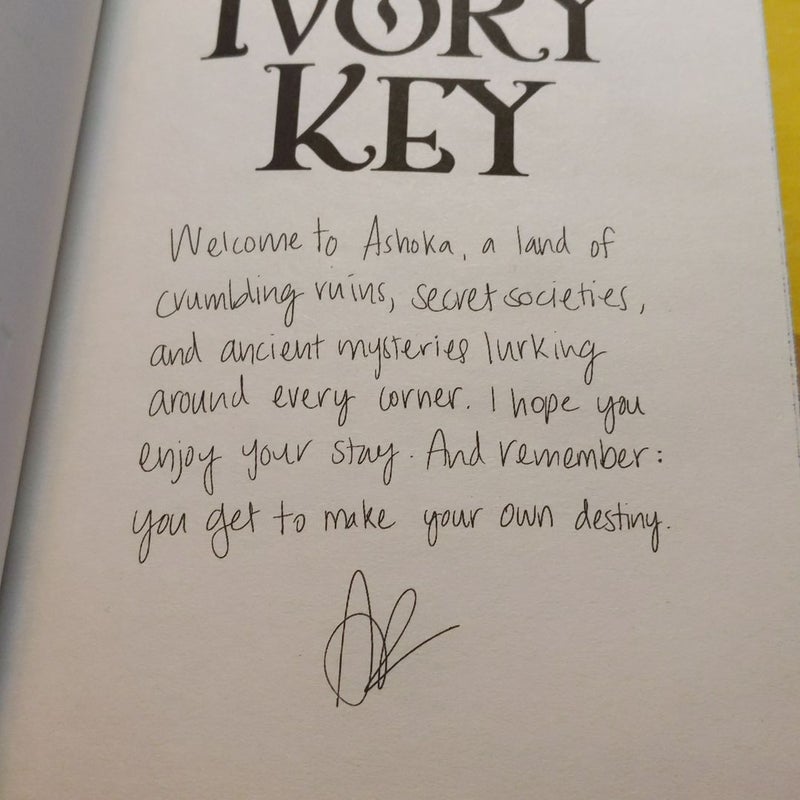 IVORY
KEY
Welcome to Ashoka, a land of
crumbling ruins, secret societies,
and ancient mysteries lurking
around every corner. I hope you
enjoy your stay. And remember:
you get to make your own destiny.